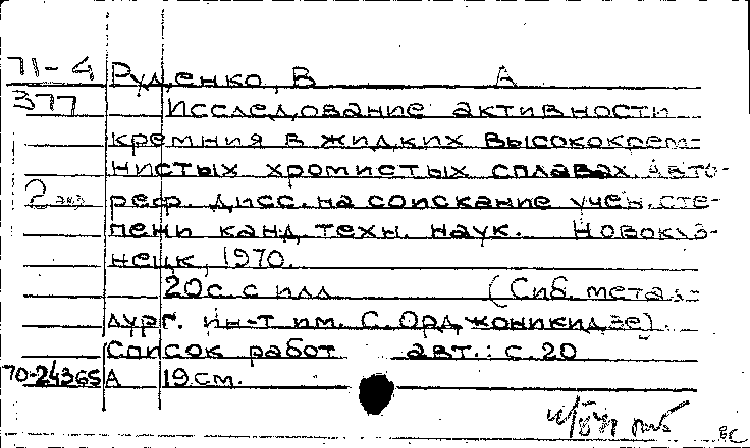 71-4 Руденко, В А
377 Исследование активности
кремния в жидких высококрем-
нистых хромистых сплавах. Авто-
2 экз реф. дисс. на соискание учен. сте-
пени канд. техн. наук. Новокуз-
нецк, 1970.
20 с. с илл (Сиб. метал-
лург. ин-т им. С. Орджоникидзе).
Список работ авт.: с. 20
70-24365 А 19 см.
ВС